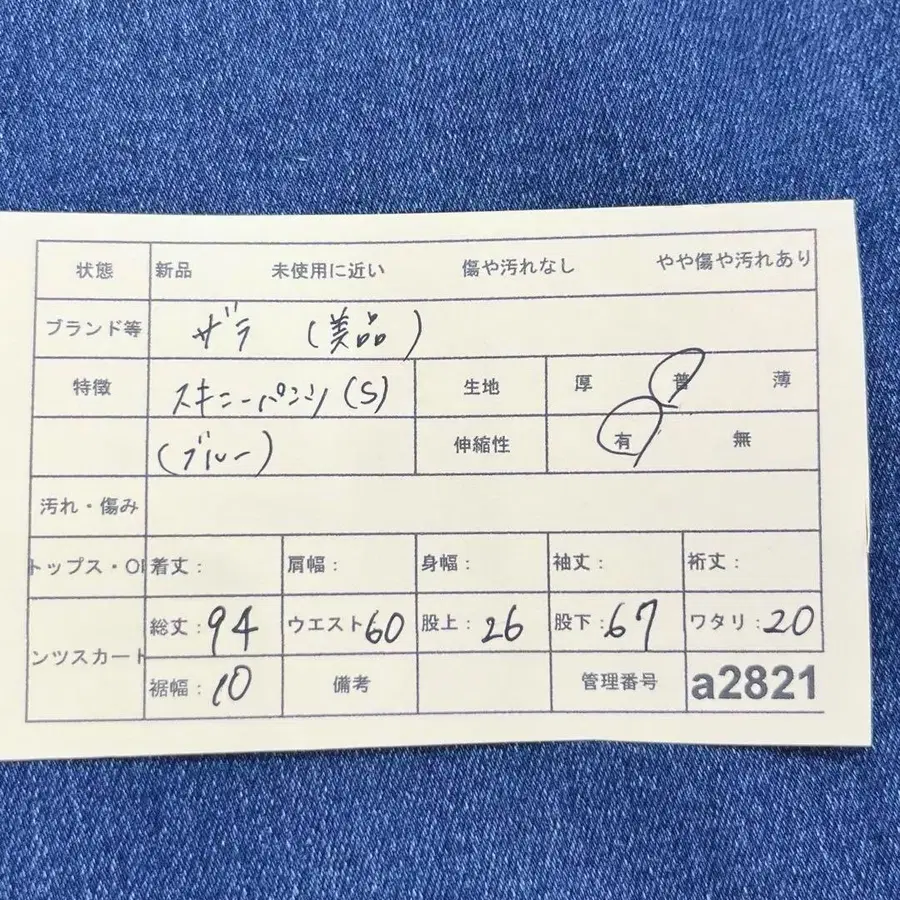 状態 新品 未使用に近い 傷や汚れなし やや傷や汚れあり
ブランド等 ザラ (美品)
特徴 スキニーパンツ(S) 生地 厚 普 薄
(ブルー) 伸縮性 有 無
汚れ・傷み
トップス・OP 着丈: 肩幅: 身幅: 袖丈: 裄丈:
ンツスカート 総丈:94 ウエスト60 股上:26 股下:67 ワタリ:20
裾幅:10 備考 管理番号 a2821